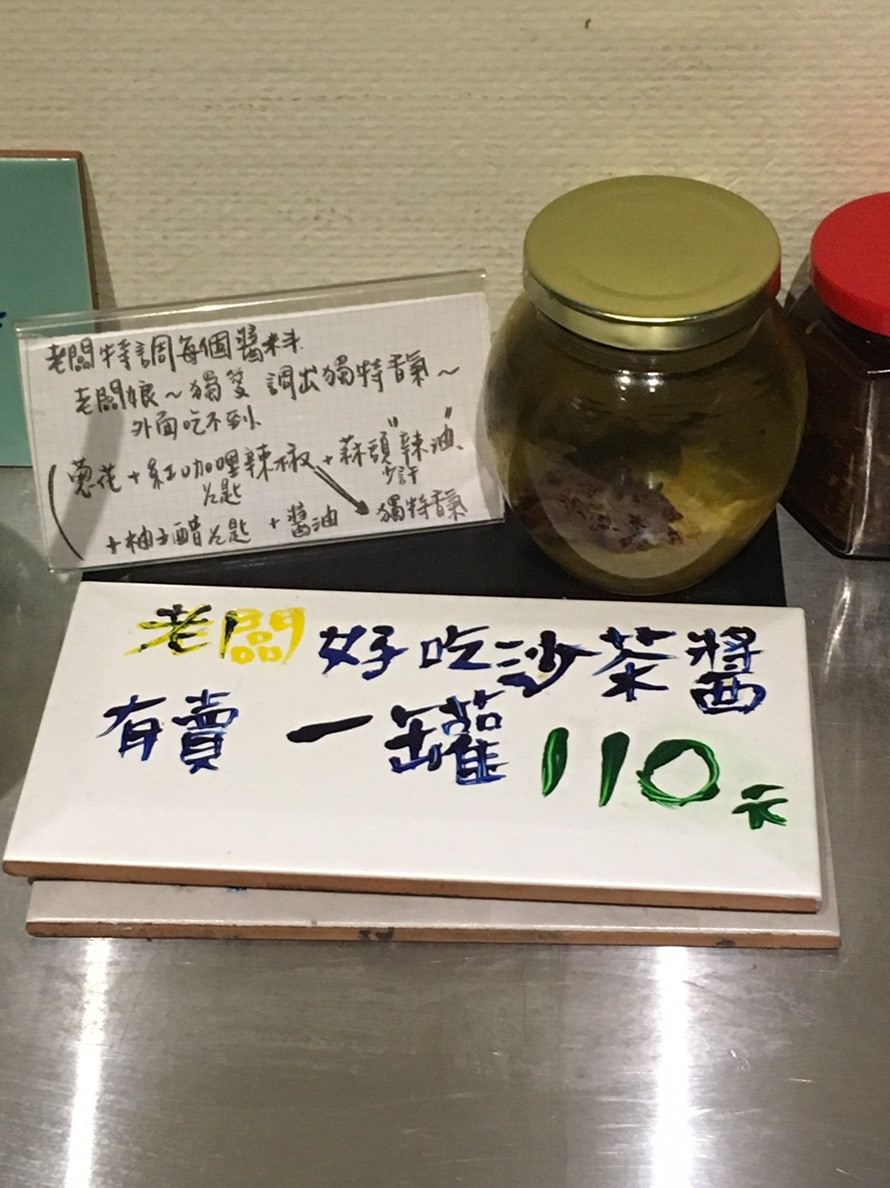 老闆特調每個醬料
老闆娘～獨笈 調出獨特香氣～
外面吃不到
(蔥花+紅咖哩辣椒+蒜頭"辣油"
匕匙 少許
+柚子醋匕匙 +醬油 獨特香氣
老闆 好吃沙茶醬
有賣 一罐 110元